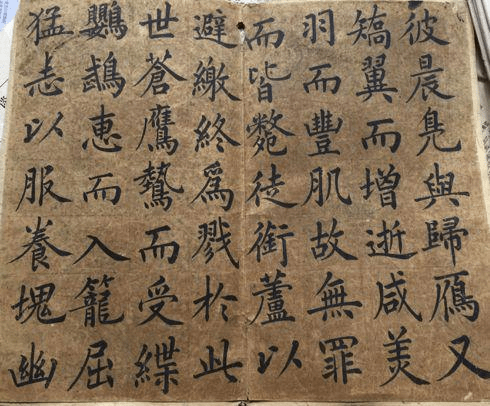 彼晨鳧與歸鴈又
矯翼而增逝咸美
羽而豐肌故無罪
而皆斃徒銜蘆以
避繳終爲戮於此
世蒼鷹鷙而受緤
鸚鵡惠而入籠屈
猛志以服養塊幽